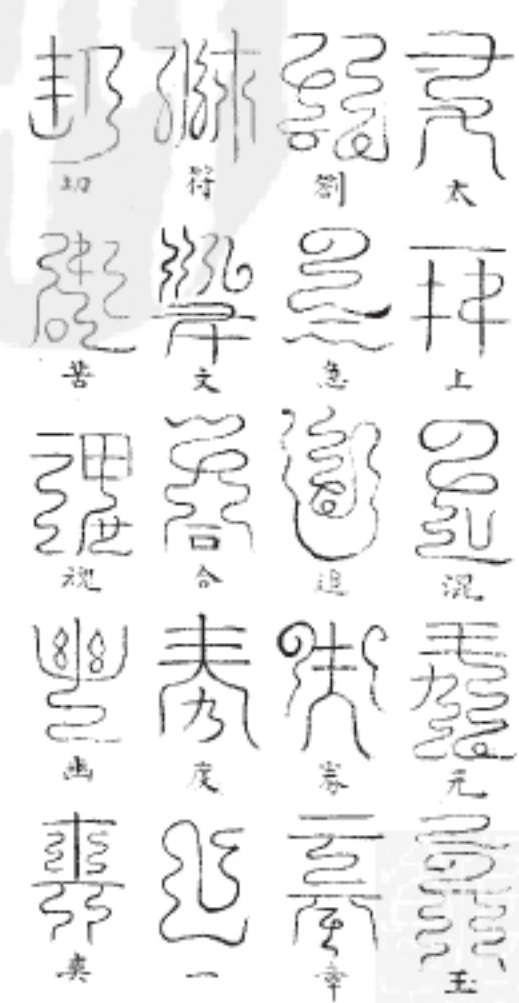 太上混元玉
劄急追章
符文合度一
切苦魂幽爽